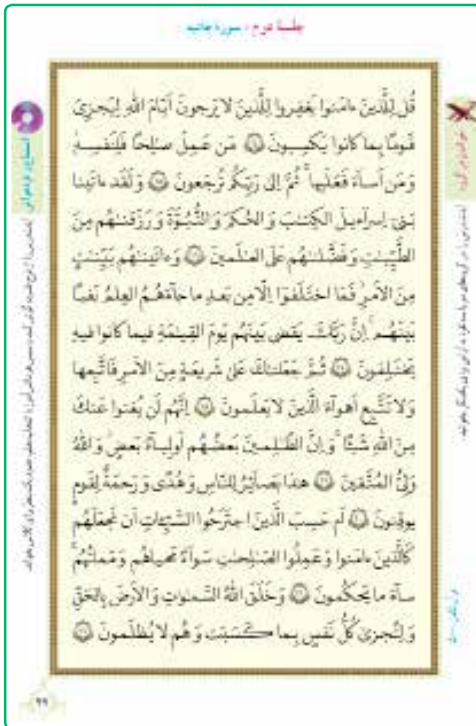 جلسهٔ دوم : سورهٔ جاثیه
قُل لِلَّذینَ ءامَنوا یَغفِروا لِلَّذینَ لا یَرجونَ اَیّامَ اللّٰهِ لِیَجزِیَ
قَومًا بِما کانوا یَکسِبونَ ﴿۱۴﴾ مَن عَمِلَ صٰلِحًا فَلِنَفسِهٖ
وَ مَن اَسآءَ فَعَلَیها ۖ ثُمَّ اِلیٰ رَبِّکُم تُرجَعونَ ﴿۱۵﴾ وَ لَقَد ءاتَینا
بَنی اِسرآءیلَ الکِتٰبَ وَ الحُکمَ وَ النُّبُوَّةَ وَ رَزَقنٰهُم مِنَ
الطَّیِّبٰتِ وَ فَضَّلنٰهُم عَلَی العٰلَمینَ ﴿۱۶﴾ وَ ءاتَینٰهُم بَیِّنٰتٍ
مِنَ الاَمرِ ۖ فَمَا اختَلَفوا اِلّا مِن بَعدِ ما جآءَهُمُ العِلمُ بَغیًا
بَینَهُم ۚ اِنَّ رَبَّکَ یَقضی بَینَهُم یَومَ القِیٰمَةِ فیما کانوا فیهِ
یَختَلِفونَ ﴿۱۷﴾ ثُمَّ جَعَلنٰکَ عَلیٰ شَریعَةٍ مِنَ الاَمرِ فَاتَّبِعها
وَ لا تَتَّبِع اَهوآءَ الَّذینَ لا یَعلَمونَ ﴿۱۸﴾ اِنَّهُم لَن یُغنوا عَنکَ
مِنَ اللّٰهِ شَیئًا ۚ وَ اِنَّ الظّٰلِمینَ بَعضُهُم اَولِیآءُ بَعضٍ ۖ وَ اللّٰهُ
وَلِیُّ المُتَّقینَ ﴿۱۹﴾ هٰذا بَصآئِرُ لِلنّاسِ وَ هُدًی وَ رَحمَةٌ لِقَومٍ
یوقِنونَ ﴿۲۰﴾ اَم حَسِبَ الَّذینَ اجتَرَحُوا السَّیِّئاتِ اَن نَجعَلَهُم
کَالَّذینَ ءامَنوا وَ عَمِلُوا الصّٰلِحٰتِ سَوآءً مَحیاهُم وَ مَماتُهُم ۚ
سآءَ ما یَحکُمونَ ﴿۲۱﴾ وَ خَلَقَ اللّٰهُ السَّمٰوٰتِ وَ الاَرضَ بِالحَقِّ
وَ لِتُجزیٰ کُلُّ نَفسٍ بِما کَسَبَت وَ هُم لا یُظلَمونَ ﴿۲۲﴾